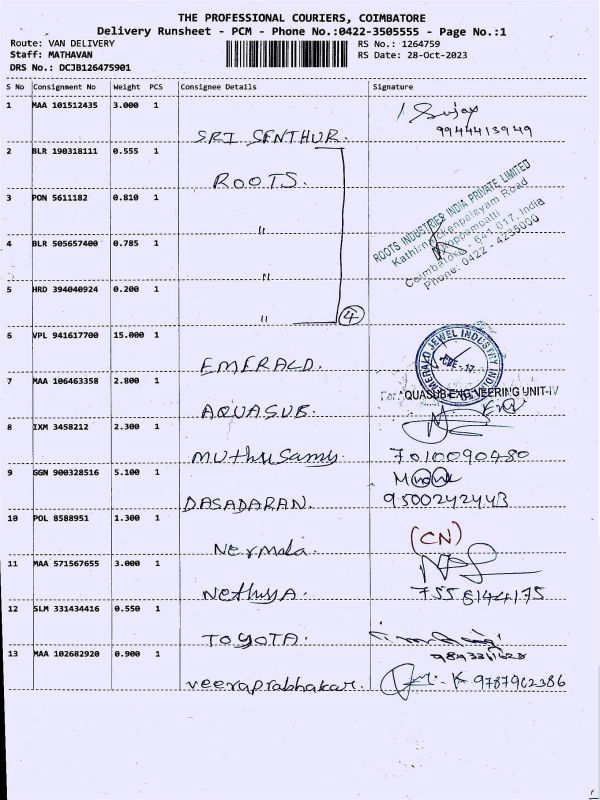 THE PROFESSIONAL COURIERS, COIMBATORE
Delivery Runsheet - PCM - Phone No.:0422-3505555 - Page No.:1
Route: VAN DELIVERY
RS No.: 1264759
Staff: MATHAVAN
RS Date: 28-Oct-2023
DRS No.: DCJB126475901
S No Consignment No Weight PCS Consignee Details Signature
1 MAA 101512435 3.000 1
SRI SENTHUR. Sujay
9944413949
2 BLR 190318111 0.555 1
ROOTS.
3 PON 5611182 0.810 1
"
ROOTS INDUSTRIES INDIA PRIVATE LIMITED
Road
Coimbatore - 641 017, India
Phone: 0422 - 4235000
4 BLR 505657400 0.785 1
"
5 HRD 394040924 0.200 1
" 4
6 VPL 941617700 15.000 1
EMERALD.
EMERALD JEWEL INDUSTRY INDIA
CBE - 17.
7 MAA 106463358 2.800 1
For AQUASUB ENGINEERING UNIT-IV
AQUASUB.
8 IXM 3458212 2.300 1
Muthusamy 7010090480
9 GGN 900328516 5.100 1
DASADARAN. 9500242443
10 POL 8588951 1.300 1
Nermala. (CN)
11 MAA 571567655 3.000 1
NethyyA. 7558144175
12 SLM 331434416 0.550 1
TOYOTA.
13 MAA 102682920 0.900 1
veeraprabhakar. K 9787962386